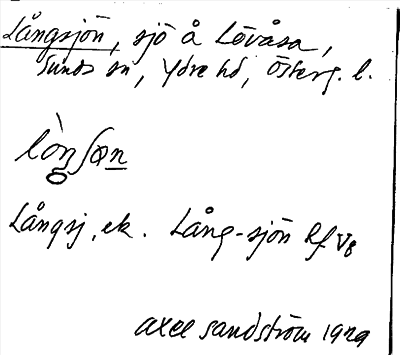 Långsjön, sjö å Lövåsa,
Sunds sn, Ydre hd, Österg. l.
lòŋʃøn
Långsj, ek. Lång-sjön Rf V8
Axel Sandström 1929